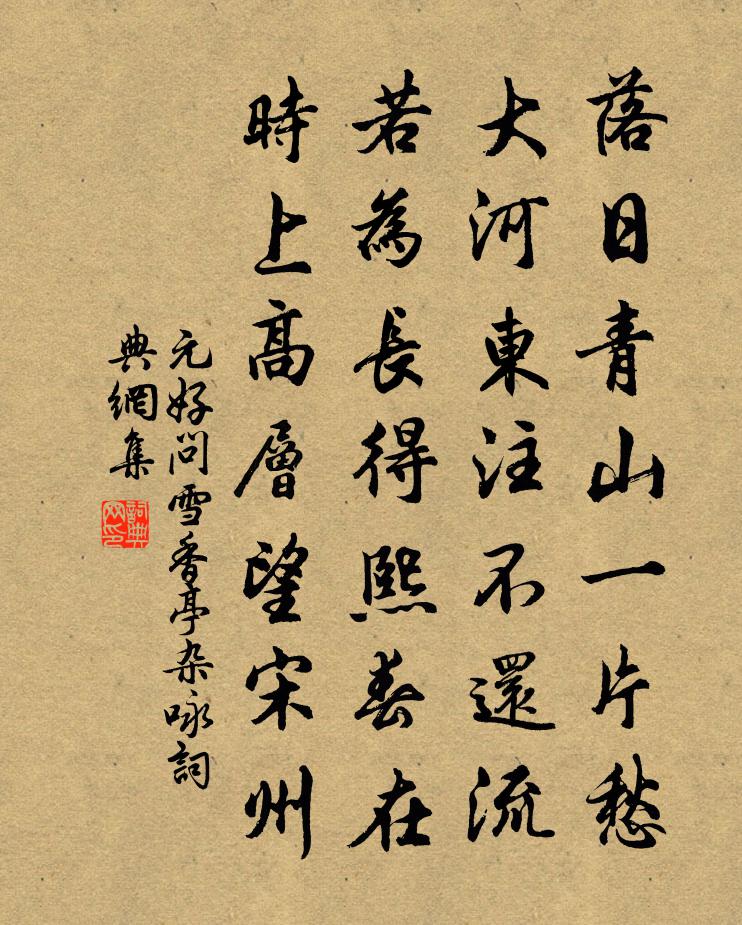 落日青山一片愁
大河東注不還流
若為長得熙春在
時上高層望宋州
元好問雪香亭杂咏詞
典網集
詞典
网印